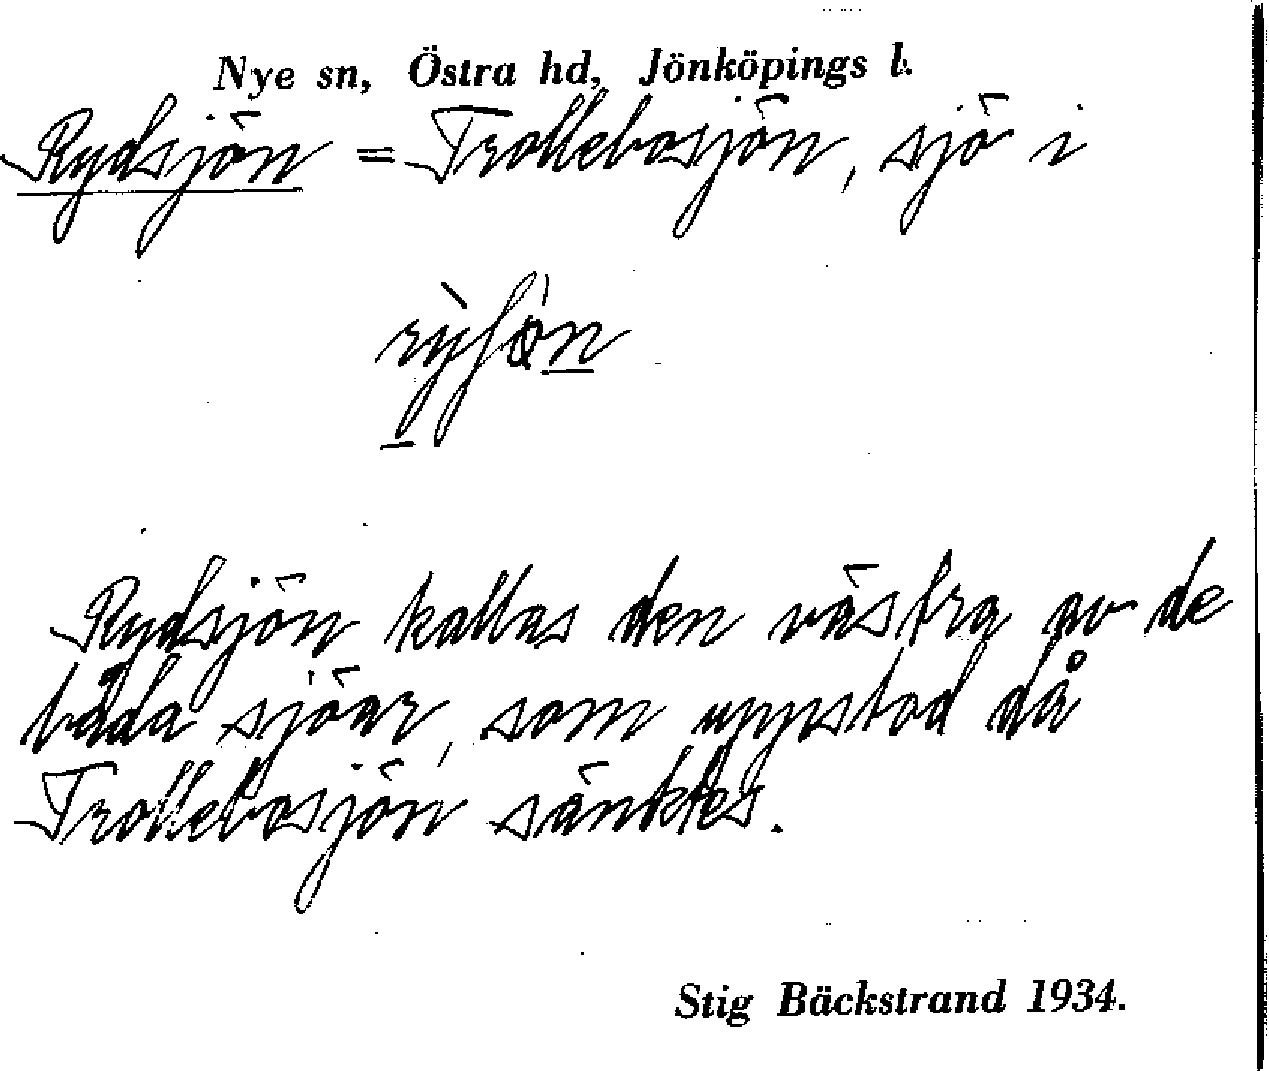 Nye sn, Östra hd, Jönköpings l.
Rydsjön = Trollebosjön, sjö i
Rydsjön kallas den västra av de
båda sjöar, som uppstod då
Trollebosjön sänktes.
Stig Bäckstrand 1934.